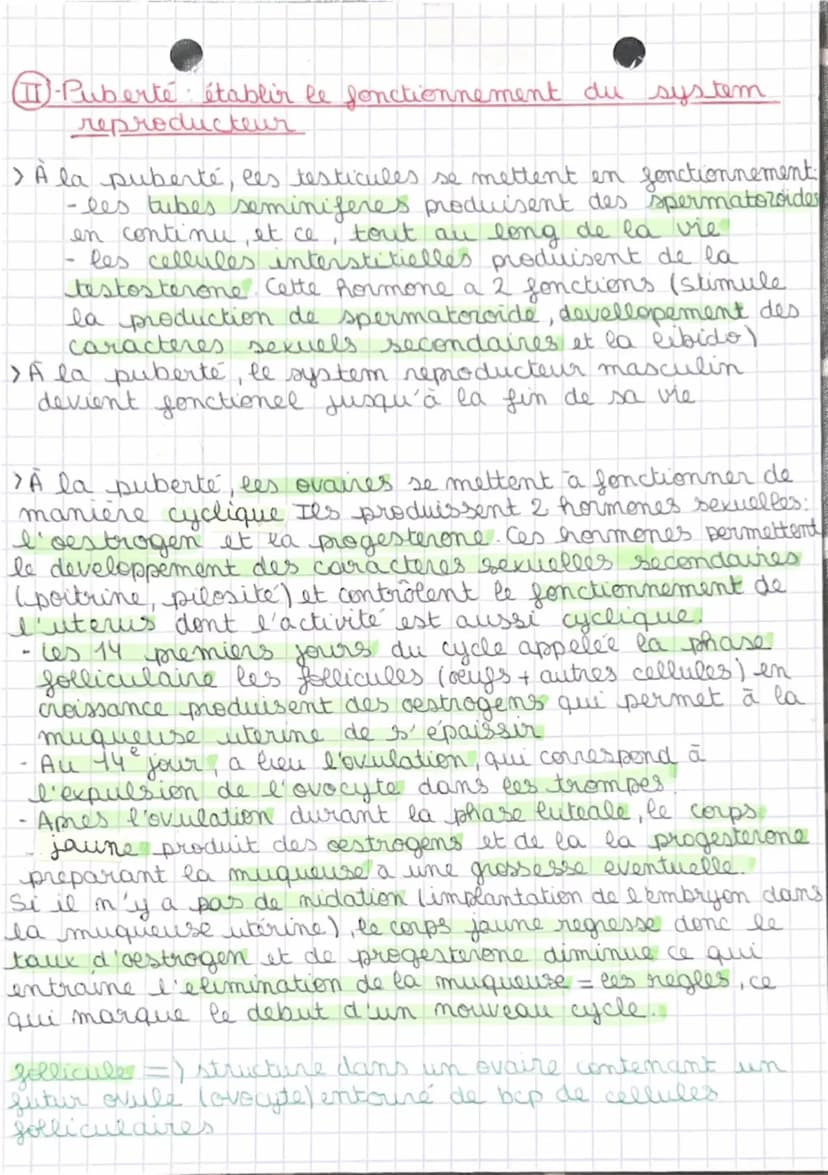 II-Puberté : établir le fonctionnement du system
reproducteur
> À la puberté, les testicules se mettent en fonctionnement:
- les tubes seminiferes produisent des spermatozoïdes
en continu, et ce, tout au long de la vie
- les cellules interstitielles produisent de la
testosterone. Cette hormone a 2 fonctions (stimule
la production de spermatozoïde, devellopement des
caracteres sexuels secondaires et la libido)
> À la puberté, le system reproducteur masculin
devient fonctionel jusqu'à la fin de sa vie
> À la puberté, les ovaires se mettent à fonctionner de
manière cyclique Ils produissent 2 hormones sexuelles:
l'oestrogen et la progesterone. Ces hormones permettent
le developpement des caracteres sexuelles secondaires
(poitrine, pilosité) et contrôlent le fonctionnement de
l'uterus dont l'activité est aussi cyclique.
- Les 14 premiers jours du cycle appelée la phase
folliculaire les follicules (oeufs + autres cellules) en
croissance produisent des oestrogens qui permet à la
muqueuse uterine de s'épaissir
- Au 14e jour, a lieu l'ovulation, qui correspond à
l'expulsion de l'ovocyte dans les trompes.
- Apres l'ovulation durant la phase luteale, le corps
- jaune produit des oestrogens et de la la progesterone
preparant la muqueuse a une grossesse eventuelle.
Si il n'y a pas de nidation (implantation de l'embryon dans
la muqueuse utérine), le corps jaune regresse donc le
taux d'oestrogen et de progesterone diminue ce qui
entraine l'elimination de la muqueuse = les regles, ce
qui marque le debut d'un nouveau cycle.
follicules => structure dans un ovaire contenant un
futur ovule (ovocyte) entouré de bcp de cellules
folliculaires